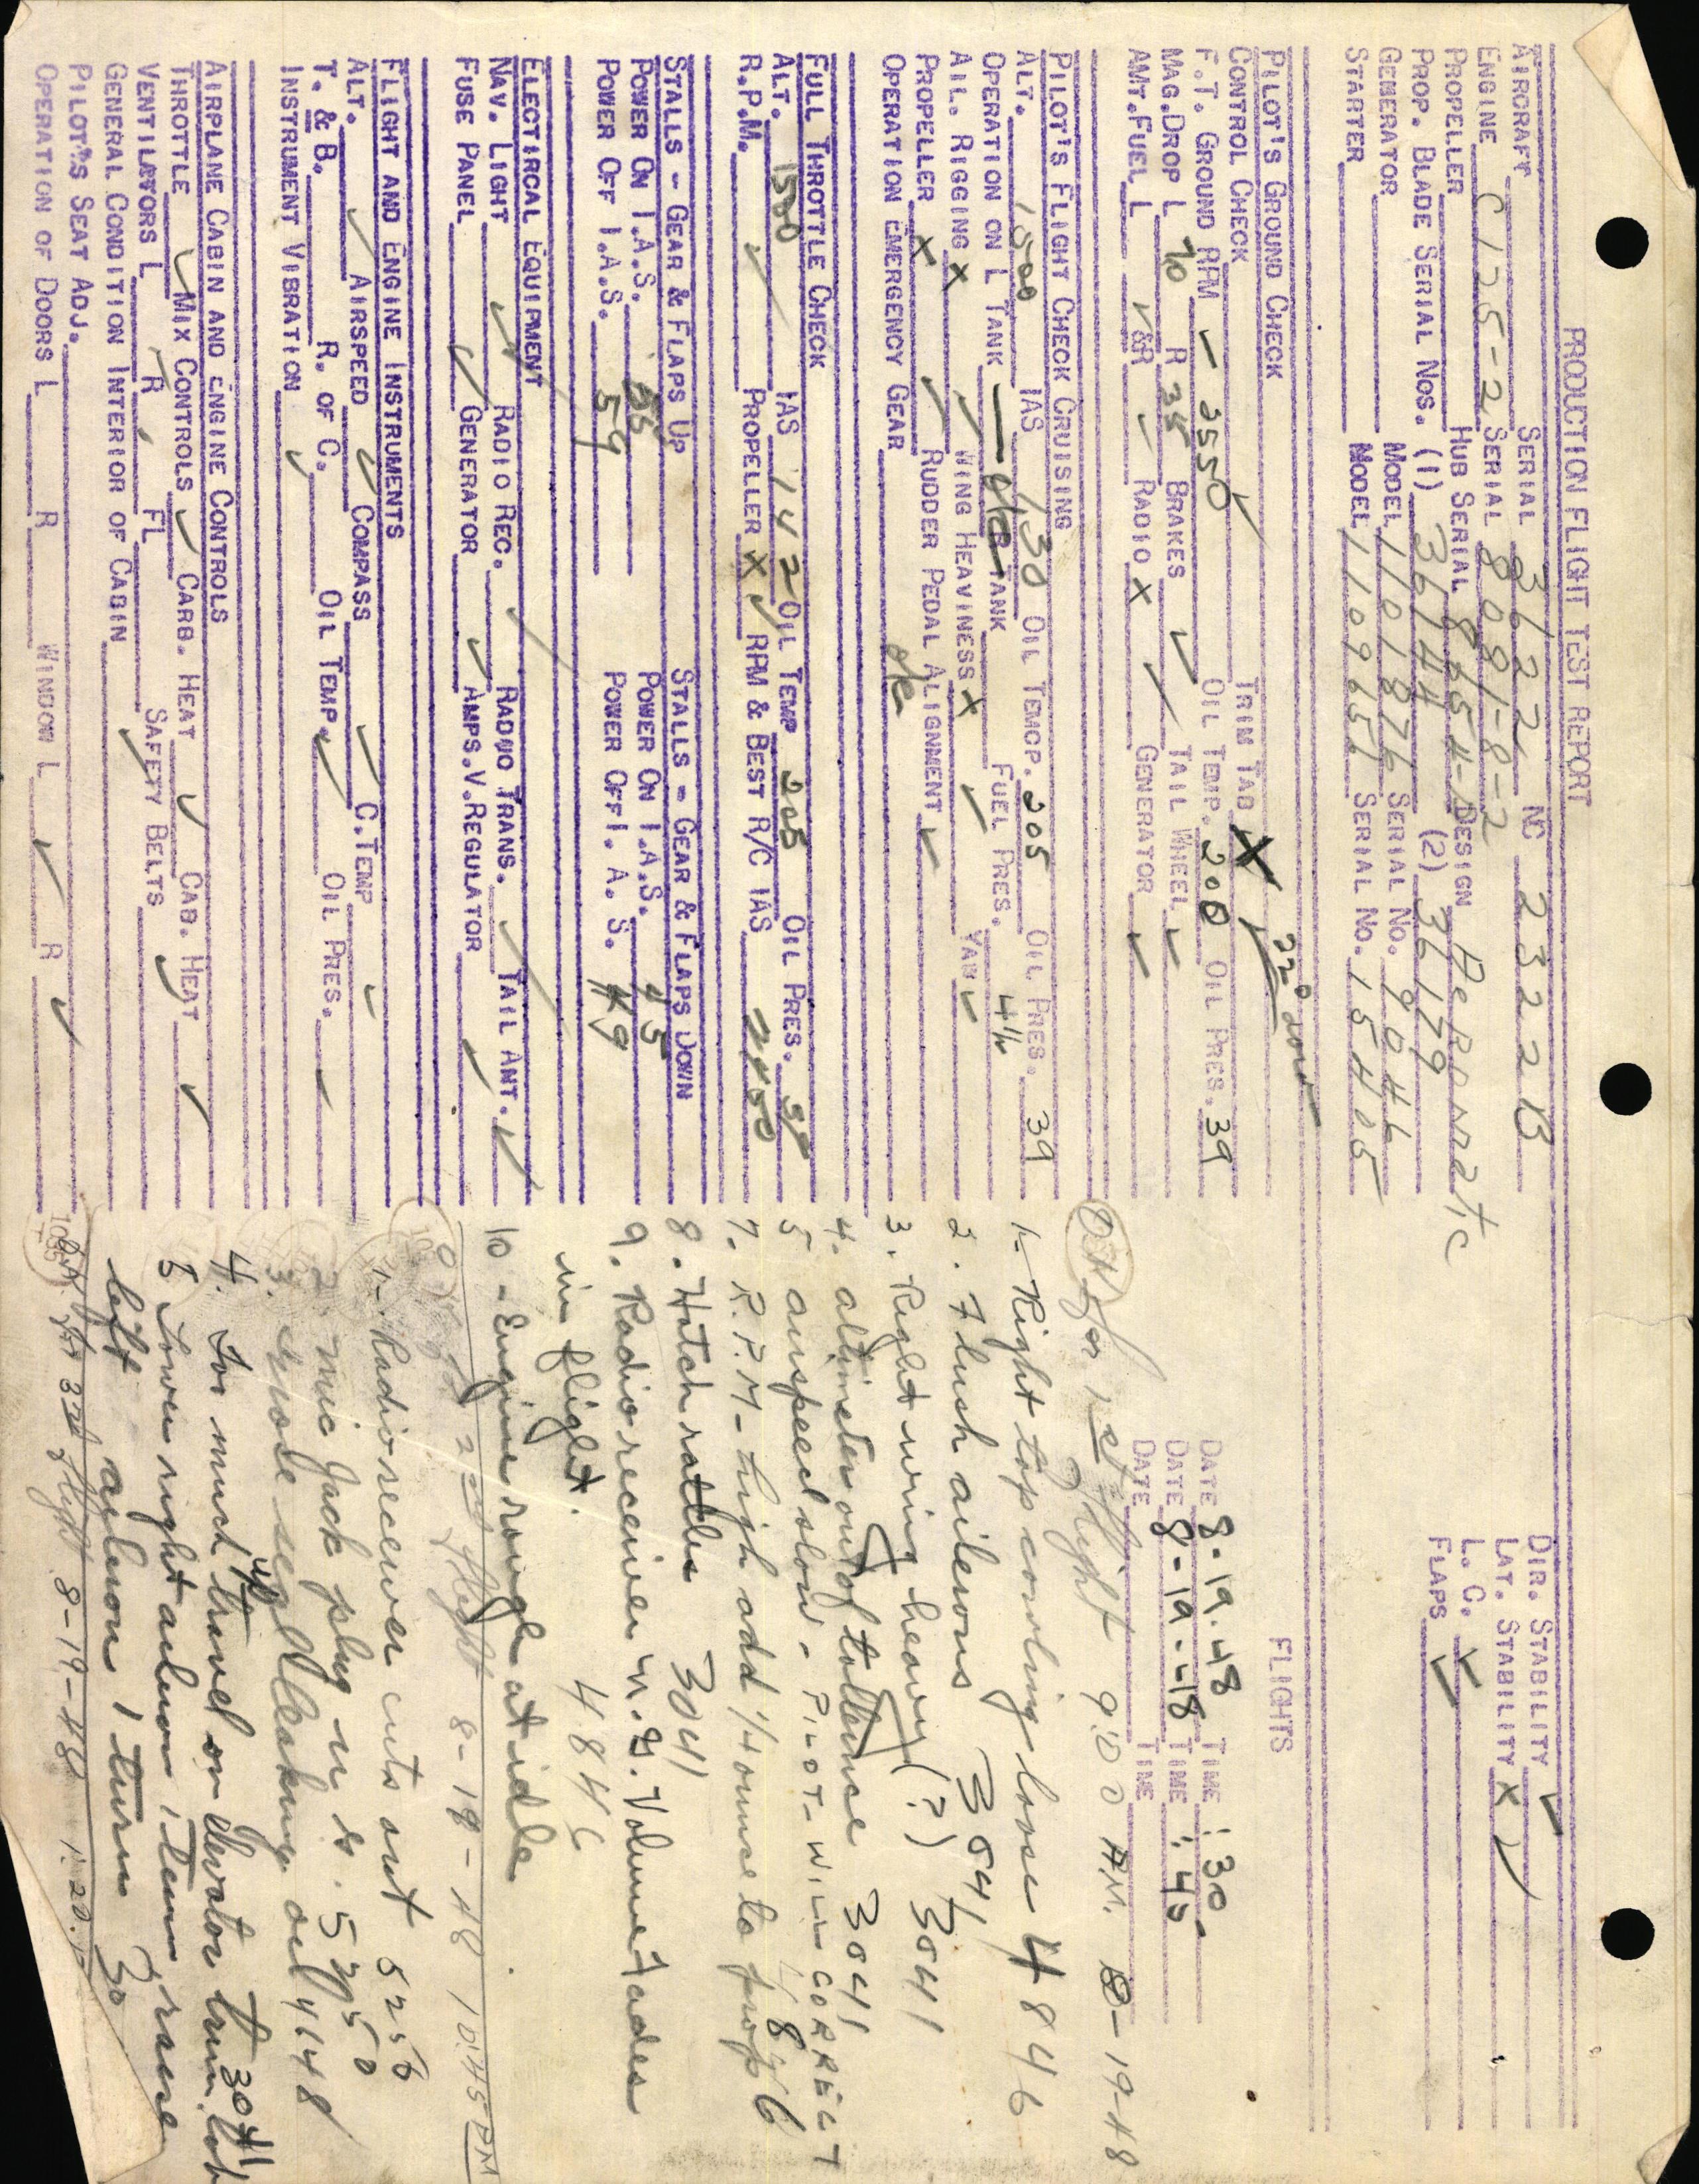 PRODUCTION FLIGHT TEST REPORT
AIRCRAFT SERIAL 3622 NC 2322B DIR. STABILITY ✓
ENGINE C125-2 SERIAL 8081-8-2 LAT. STABILITY X ✓
PROPELLER HUB SERIAL DESIGN L. G. ✓
PROP. BLADE SERIAL NOS. (1) 36144 (2) 36179 FLAPS ✓
GEMERATOR MODEL 1101876 SERIAL NO.
STARTER MODEL 1109656 SERIAL NO. 15405
PILOT'S GROUND CHECK FLIGHTS
CONTROL CHECK TRIM TAB X ✓ 22°
F.T. GROUND RPM – 2550 ✓ OIL TEMP. 200 OIL PRES. 39 DATE 8-19-48 TIME :30
MAG.DROP L 70 R 35 BRAKES ✓ TAIL WHEEL ✓ DATE 8-19-48 TIME :45
AMT.FUEL L ✓ &R ✓ RADIO X ✓ GENERATOR ✓ DATE TIME
1st Flight 9:00 AM. 8-19-48
PILOT'S FLIGHT CHECK CRUISING
ALT. 1500 IAS 130 OIL TEMCP. 205 OIL PRES. 39
OPERATION ON L TANK — R TANK FUEL PRES. 4½
AIL. RIGGING X ✓ WING HEAVINESS X ✓ YAW ✓
PROPELLER X ✓ RUDDER PEDAL ALIGNMENT ✓
OPERATION EMERGENCY GEAR o/k
1- Right top cowling loose 4846
2. Flush ailerons 3041
3. Right wing heavy (?) 3041
FULL THROTTLE CHECK
ALT. 1500 IAS 142 OIL TEMP 205 OIL PRES.
R.P.M. ✓ PROPELLER X ✓ RPM & BEST R/C IAS
4. altimeter out of tollerance 3041
5 airspeed slow - PILOT- WILL CORRECT
7. R.P.M- high add ¼ ounce to prop
STALLS - GEAR & FLAPS UP STALLS - GEAR & FLAPS DOWN
POWER ON I.A.S. 55 POWER ON I.A.S. 45
POWER OFF I.A.S. 59 POWER OFFI. A. S.
8. Hatch rattles 3041
9. Radio receiver N.G. Volume fades
in flight. 4846
ELECTIRCAL EQUIPMENT
NAV. LIGHT ✓ RADIO REC. ✓ RADIO TRANS. ✓ TAIL ANT. ✓
FUSE PANEL ✓ GENERATOR ✓ AMPS.V.REGULATOR ✓
10 - Engine rough at idle
2nd Flight 8-19-48 10:45 PM
FLIGHT AND ENGINE INSTRUMENTS
ALT. ✓ AIRSPEED ✓ COMPASS ✓ C.TEMP ✓
T. & B. R. OF C. OIL TEMP. ✓ OIL PRES. ✓
INSTRUMENT VIBRATION ✓
1- Radio receiver cuts out 5250
2. mic Jack plug
3. nose seal leaking oil
AIRPLANE CABIN AND ENGINE CONTROLS
THROTTLE ✓ MIX CONTROLS ✓ CARB. HEAT ✓ CAB. HEAT ✓
VENTILATORS L R FL SAFETY BELTS
GENERAL CONDITION INTERIOR OF CABIN ✓
PILOT'S SEAT ADJ.
OPERATION OF DOORS L R WINDOW L ✓ R ✓
4. To much up travel on elevator trim tab 3041
5 Lower right aileron 1 turn, raise
left aileron 1 turn
3rd Flight 8-19-48